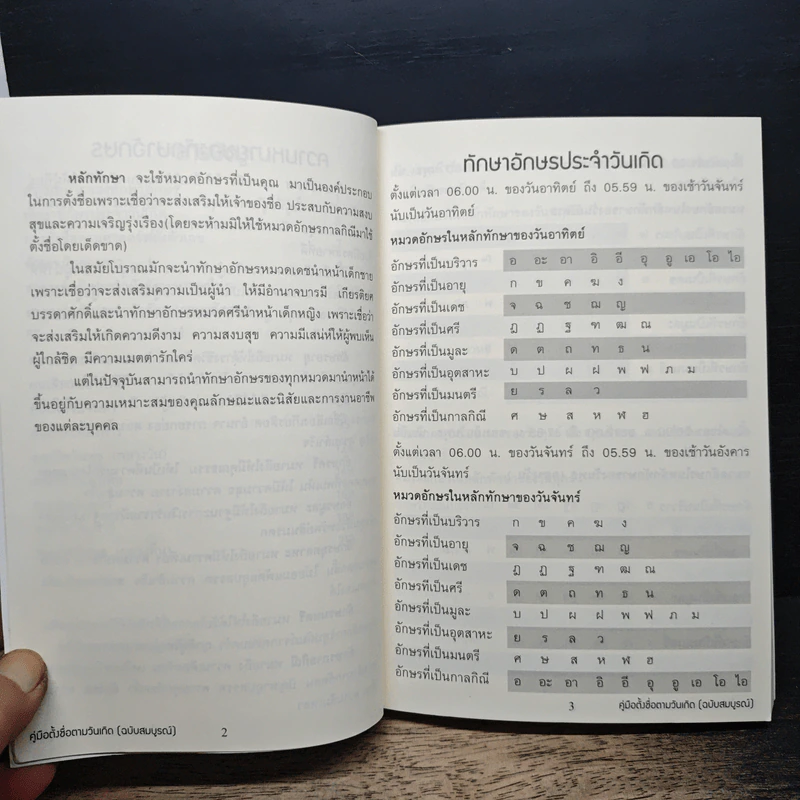 หลักทักษา จะใช้หมวดอักษรที่เป็นคุณ มาเป็นองค์ประกอบ
ในการตั้งชื่อเพราะเชื่อว่าจะส่งเสริมให้เจ้าของชื่อ ประสบกับความสงบ
สุขและความเจริญรุ่งเรือง(โดยจะห้ามมิให้ใช้หมวดอักษรกาลกิณีมาใช้
ตั้งชื่อโดยเด็ดขาด)
ในสมัยโบราณมักจะนำทักษาอักษรหมวดเดชนำหน้าเด็กชาย
เพราะเชื่อว่าจะส่งเสริมความเป็นผู้นำ ให้มีอำนาจบารมี เกียรติยศ
บรรดาศักดิ์และนำทักษาอักษรหมวดศรีนำหน้าเด็กหญิง เพราะเชื่อว่า
จะส่งเสริมให้เกิดความดีงาม ความสงบสุข ความมีเสน่ห์ให้ผู้พบเห็น
ผู้ใกล้ชิด มีความเมตตารักใคร่
แต่ในปัจจุบันสามารถนำทักษาอักษรของทุกหมวดมานำหน้าได้
ขึ้นอยู่กับความเหมาะสมของคุณลักษณะและนิสัยและการงานอาชีพ
ของแต่ละบุคคล
คู่มือตั้งชื่อตามวันเกิด (ฉบับสมบูรณ์) 2
ทักษาอักษรประจำวันเกิด
ตั้งแต่เวลา 06.00 น. ของวันอาทิตย์ ถึง 05.59 น. ของเช้าวันจันทร์
นับเป็นวันอาทิตย์
หมวดอักษรในหลักทักษาของวันอาทิตย์
อักษรที่เป็นบริวาร อ อะ อา อิ อี อุ อู เอ โอ ไอ
อักษรที่เป็นอายุ ก ข ค ฆ ง
อักษรที่เป็นเดช จ ฉ ช ฌ ญ
อักษรที่เป็นศรี ฎ ฏ ฐ ฑ ฒ ณ
อักษรที่เป็นมูละ ด ต ถ ท ธ น
อักษรที่เป็นอุตสาหะ บ ป ผ ฝ พ ฟ ภ ม
อักษรที่เป็นมนตรี ย ร ล ว
อักษรที่เป็นกาลกิณี ศ ษ ส ห ฬ ฮ
ตั้งแต่เวลา 06.00 น. ของวันจันทร์ ถึง 05.59 น. ของเช้าวันอังคาร
นับเป็นวันจันทร์
หมวดอักษรในหลักทักษาของวันจันทร์
อักษรที่เป็นบริวาร ก ข ค ฆ ง
อักษรที่เป็นอายุ จ ฉ ช ฌ ญ
อักษรที่เป็นเดช ฎ ฏ ฐ ฑ ฒ ณ
อักษรที่เป็นศรี ด ต ถ ท ธ น
อักษรที่เป็นมูละ บ ป ผ ฝ พ ฟ ภ ม
อักษรที่เป็นอุตสาหะ ย ร ล ว
อักษรที่เป็นมนตรี ศ ษ ส ห ฬ ฮ
อักษรที่เป็นกาลกิณี อ อะ อา อิ อี อุ อู เอ โอ ไอ
3 คู่มือตั้งชื่อตามวันเกิด (ฉบับสมบูรณ์)